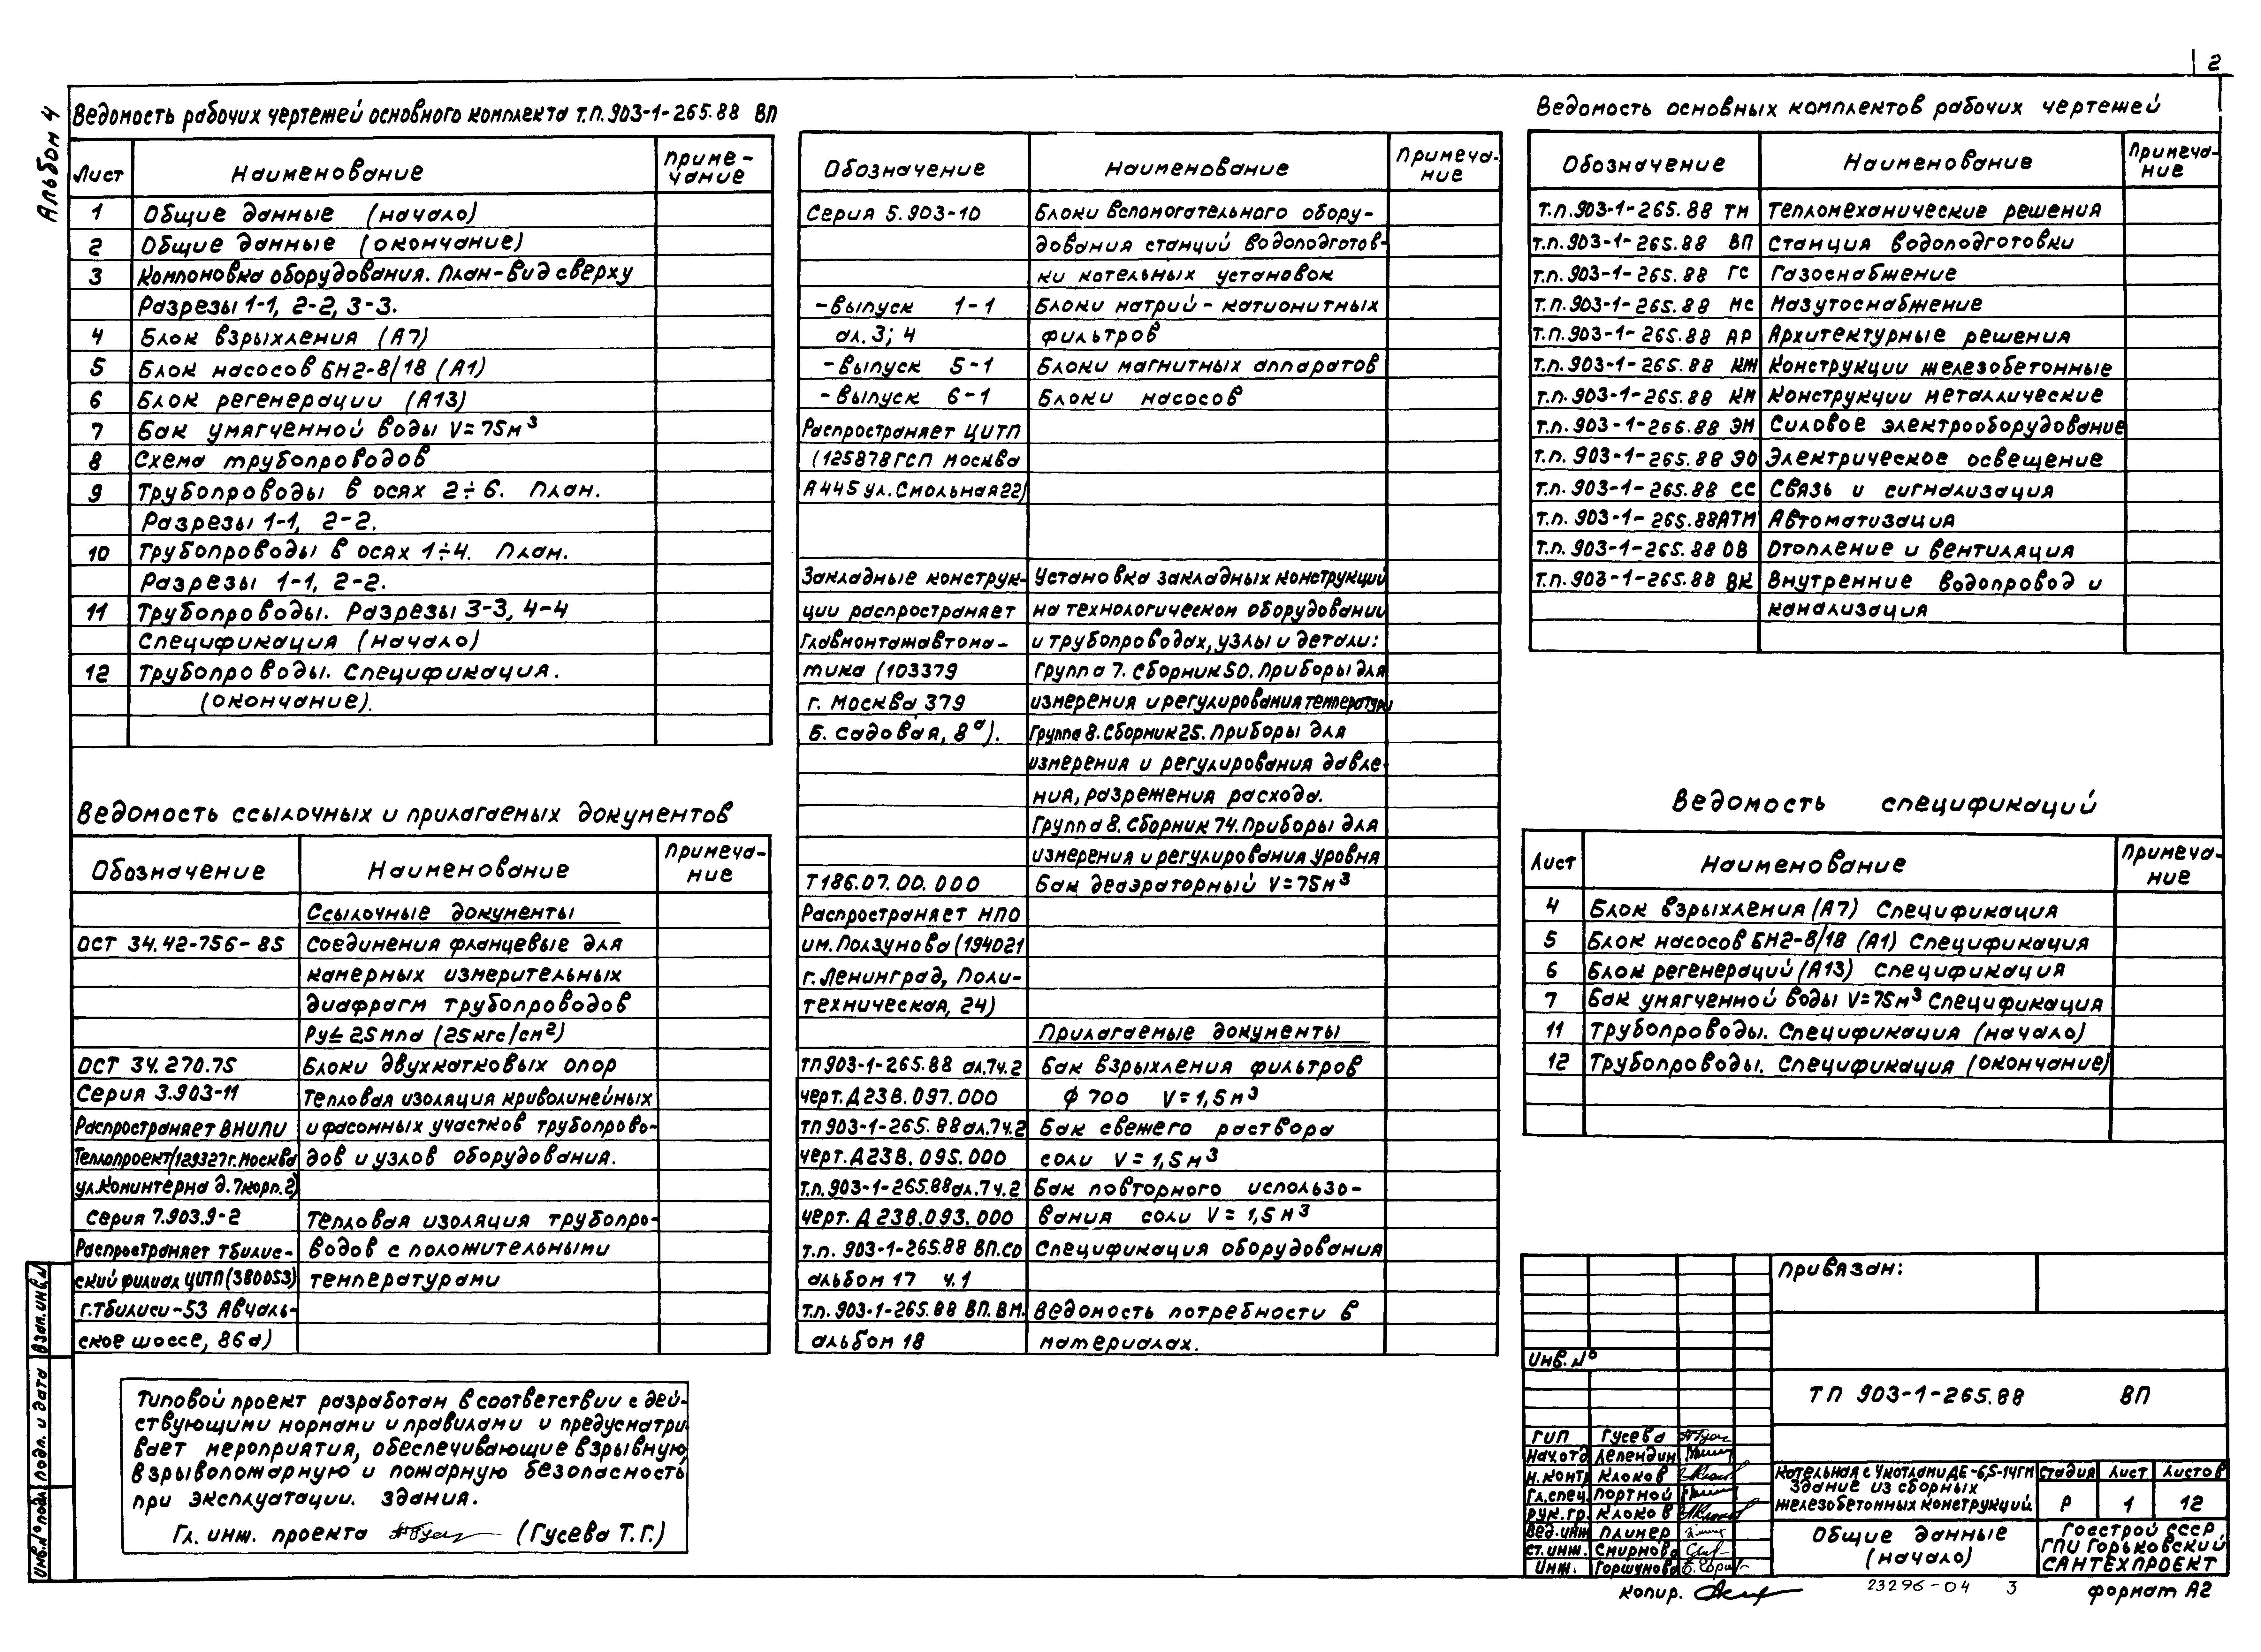 2
Альбом 4
Ведомость рабочих чертежей основного комплекта т.п. 903-1-265.88 ВП
Лист Наименование Приме-
чание
1 Общие данные (начало)
2 Общие данные (окончание)
3 Компоновка оборудования. План-вид сверху
Разрезы 1-1, 2-2, 3-3.
4 Блок взрыхления (А7)
5 Блок насосов БН2-8/18 (А1)
6 Блок регенерации (А13)
7 Бак умягченной воды V=75м³
8 Схема трубопроводов
9 Трубопроводы в осях 2÷6. План.
Разрезы 1-1, 2-2.
10 Трубопроводы в осях 1÷4. План.
Разрезы 1-1, 2-2.
11 Трубопроводы. Разрезы 3-3, 4-4
Спецификация (начало)
12 Трубопроводы. Спецификация.
(окончание).
Ведомость ссылочных и прилагаемых документов
Обозначение Наименование Примеча-
ние
Ссылочные документы
ОСТ 34.42-756-85 Соединения фланцевые для
камерных измерительных
диафрагм трубопроводов
Ру≤ 2,5 мпа (25кгс/см²)
ОСТ 34.270.75 Блоки двухкатковых опор
Серия 3.903-11 Тепловая изоляция криволинейных
Распространяет ВНИПИ и фасонных участков трубопрово-
Теплопроект (129327 г. Москва дов и узлов оборудования.
ул. Коминтерна д. 7 корп. 2)
Серия 7.903.9-2 Тепловая изоляция трубопро-
Распространяет Тбилис- водов с положительными
ский филиал ЦИТП (380053) температурами
г. Тбилиси-53 Авчаль-
ское шоссе, 86а)
Типовой проект разработан в соответствии с дей-
ствующими нормами и правилами и предусматри
вает мероприятия, обеспечивающие взрывную,
взрывопожарную и пожарную безопасность
при эксплуатации. здания.
Гл. инж. проекта (Гусева Т.Г.)
Обозначение Наименование Примеча-
ние
Серия 5.903-10 Блоки вспомогательного обору-
дования станций водоподготов-
ки котельных установок
-выпуск 1-1 Блоки натрий-катионитных
ал. 3; 4 фильтров
-выпуск 5-1 Блоки магнитных аппаратов
-выпуск 6-1 Блоки насосов
Распространяет ЦИТП
(125878 ГСП Москва
А 445 ул. Смольная 22)
Закладные конструк- Установка закладных конструкций
ции распространяет на технологическом оборудовании
Главмонтажавтома- и трубопроводах, узлы и детали:
тика (103379 Группа 7. Сборник 50. Приборы для
г. Москва 379 измерения и регулирования температуры
Б. Садовая, 8ª). Группа 8. Сборник 25. Приборы для
измерения и регулирования давле-
ния, разрежения расхода.
Группа 8. Сборник 74. Приборы для
измерения и регулирования уровня
Т 186.07.00.000 Бак деаэраторный V=75м³
Распространяет НПО
им. Ползунова (194021
г. Ленинград, Поли-
техническая, 24)
Прилагаемые документы
ТП 903-1-265.88 ал. 7ч.2 Бак взрыхления фильтров
черт. Д 23В.097.000 ф 700 V=1,5м³
ТП 903-1-265.88 ал. 7ч.2 Бак свежего раствора
черт. Д 23В.095.000 соли V=1,5м³
т.п. 903-1-265.88 ал. 7ч.2 Бак повторного использо-
черт. Д 23В.093.000 вания соли V=1,5м³
т.п. 903-1-265.88 ВП.СО Спецификация оборудования
альбом 17 ч.1
т.п. 903-1-265.88 ВП.ВМ. Ведомость потребности в
альбом 18 материалах.
Ведомость основных комплектов рабочих чертежей
Обозначение Наименование Примеча-
ние
т.п. 903-1-265.88 ТМ Тепломеханические решения
т.п. 903-1-265.88 ВП Станция водоподготовки
т.п. 903-1-265.88 ГС Газоснабжение
т.п. 903-1-265.88 МС Мазутоснабжение
т.п. 903-1-265.88 АР Архитектурные решения
т.п. 903-1-265.88 КЖ Конструкции железобетонные
т.п. 903-1-265.88 КМ Конструкции металлические
т.п. 903-1-265.88 ЭМ Силовое электрооборудование
т.п. 903-1-265.88 ЭО Электрическое освещение
т.п. 903-1-265.88 СС Связь и сигнализация
т.п. 903-1-265.88 АТМ Автоматизация
т.п. 903-1-265.88 ОВ Отопление и вентиляция
т.п. 903-1-265.88 ВК Внутренние водопровод и
канализация
Ведомость спецификаций
Лист Наименование Примеча-
ние
4 Блок взрыхления (А7) Спецификация
5 Блок насосов БН2-8/18 (А1) Спецификация
6 Блок регенераций (А13) Спецификация
7 Бак умягченной воды V=75м³ Спецификация
11 Трубопроводы. Спецификация (начало)
12 Трубопроводы. Спецификация (окончание)
Привязан:
Инв. №
ТП 903-1-265.88 ВП
ГИП Гусева
Нач. отд Лепендин
Н. контр Клоков
Гл. спец. Портной
Рук. гр. Клоков
Вед. инж Плинер
Ст. инж. Смирнова
Инж. Горшунова
Котельная с 4 котлами ДЕ-6,5-14ГМ
Здание из сборных
железобетонных конструкций.
Стадия Лист Листов
Р 1 12
Общие данные
(начало)
Госстрой СССР
ГПИ Горьковский
САНТЕХПРОЕКТ
Копир.
23296-04 3
формат А2
Взам. инв. №
Подп. и дата
Инв. № подл.